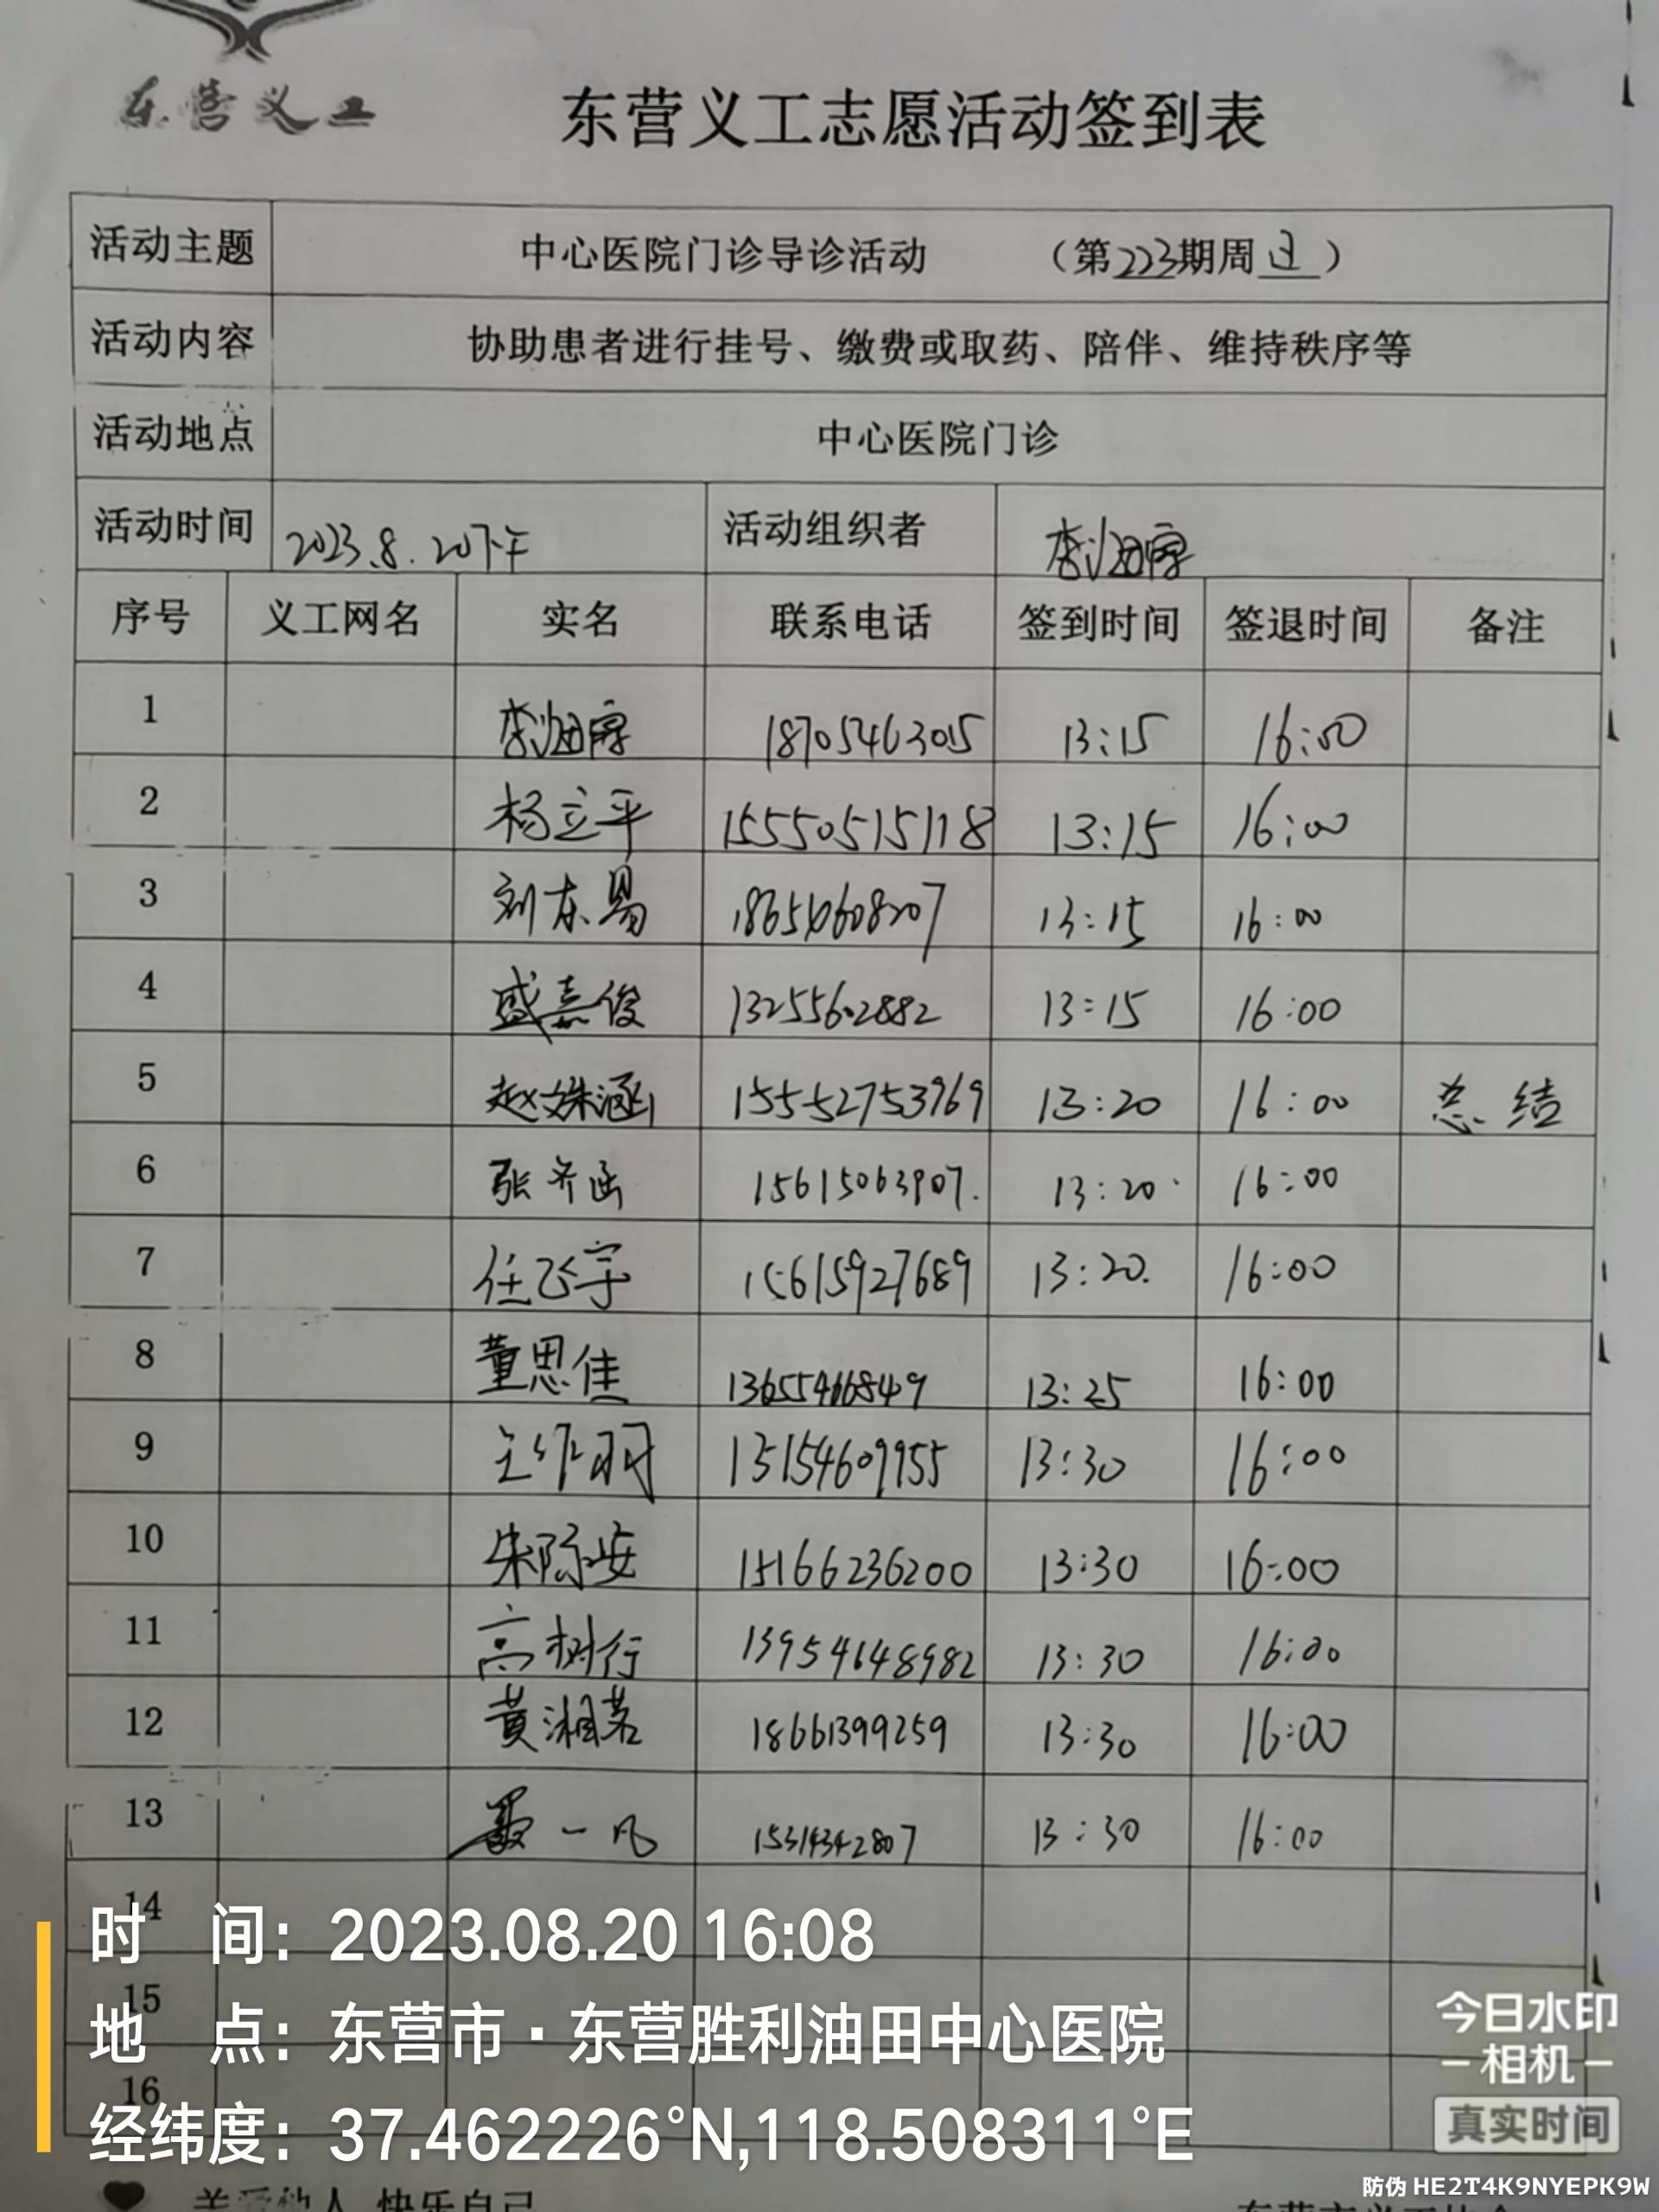 东营义工
东营义工志愿活动签到表
活动主题 中心医院门诊导诊活动 （第223期周）
活动内容 协助患者进行挂号、缴费或取药、陪伴、维持秩序等
活动地点 中心医院门诊
活动时间 2023.8.20下午 活动组织者 李
序号 义工网名 实名 联系电话 签到时间 签退时间 备注
1 李 18705463015 13:15 16:00
2 杨立平 15550515118 13:15 16:00
3 刘东昜 13:15 16:00
4 盛嘉俊 13255602882 13:15 16:00
5 赵姝涵 15552753969 13:20 16:00 总结
6 张齐函 15615063907. 13:20 16:00
7 任飞宇 15615927689 13:20. 16:00
8 董思佳 13655466849 13:25 16:00
9 羽 13154609955 13:30 16:00
10 朱际安 15166236200 13:30 16:00
11 高树行 13954648982 13:30 16:00
12 黄湘茗 18661399259 13:30 16:00
13 一凡 15314342807 13:30 16:00
14
时 间：2023.08.20 16:08
15
地 点：东营市·东营胜利油田中心医院
16
经纬度：37.462226°N,118.508311°E
今日水印
相机
真实时间
防伪 HE2T4K9NYEPK9W
关爱他人 快乐自己